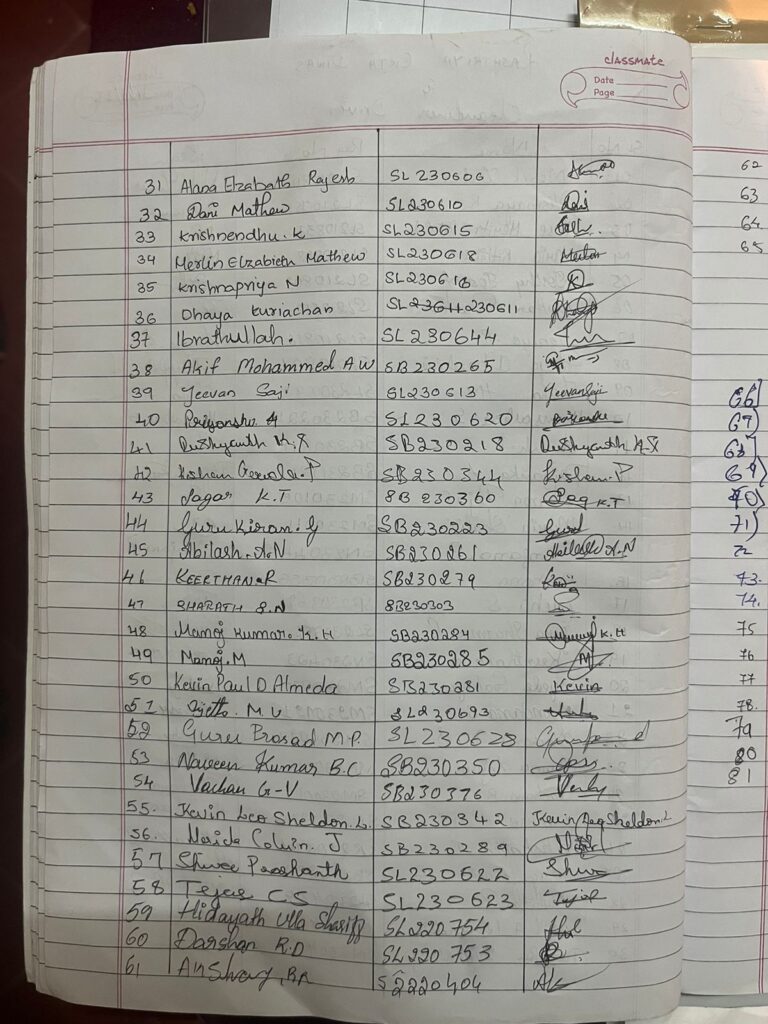 classmate
Date
Page
31 Alana Elzabath Rajesh SL 230606
32 Dani Mathew SL230610
33 Krishnendhu. K SL230615
34 Merlin Elzabieth Mathew SL230618
35 Krishnapriya N SL2306
36 Dhaya Kuriachan 230611
37 Ibrathullah. SL 230644
38 Akif Mohammed A W SB230265
39 Jeevan Saji SL230613 Jeevansaji
40 SL230620
41 Dushyanth SB230218 Dushyanth
42 Kishan P SB230344 Kishan.P
43 Sagar K.T SB 230360 Sag K.T
44 Guru Kiran. G SB230223 Gurd
45 Abilash. A.N SB230261 Abilash A.N
46 KEERTHAN.R SB230279
47 SHARATH S.N SB230303
48 Manoj Kumar. K. H SB230284 K. H
49 Manoj. M SB230285 M
50 Kevin Paul D Almeda SB230281 Kevin
51 M V SL230693
52 Guru Prasad M.P. SL230628
53 Naveen Kumar B.C SB230350
54 Vachan G-V SB230376
55. Kevin Leo Sheldon. L. SB230342 Kevin Leo Sheldon. L
56. J SB230289
57 Shree Prashanth SL230622
58 Tejas C S SL230623
59 Hidayath Ulla Shariff SL220754
60 Darshan R.D SL220753
61 2220404
62
63
64
65
66)
67)
68)
69)
70)
71)
72
73.
74.
75
76
77
78.
79
80
81